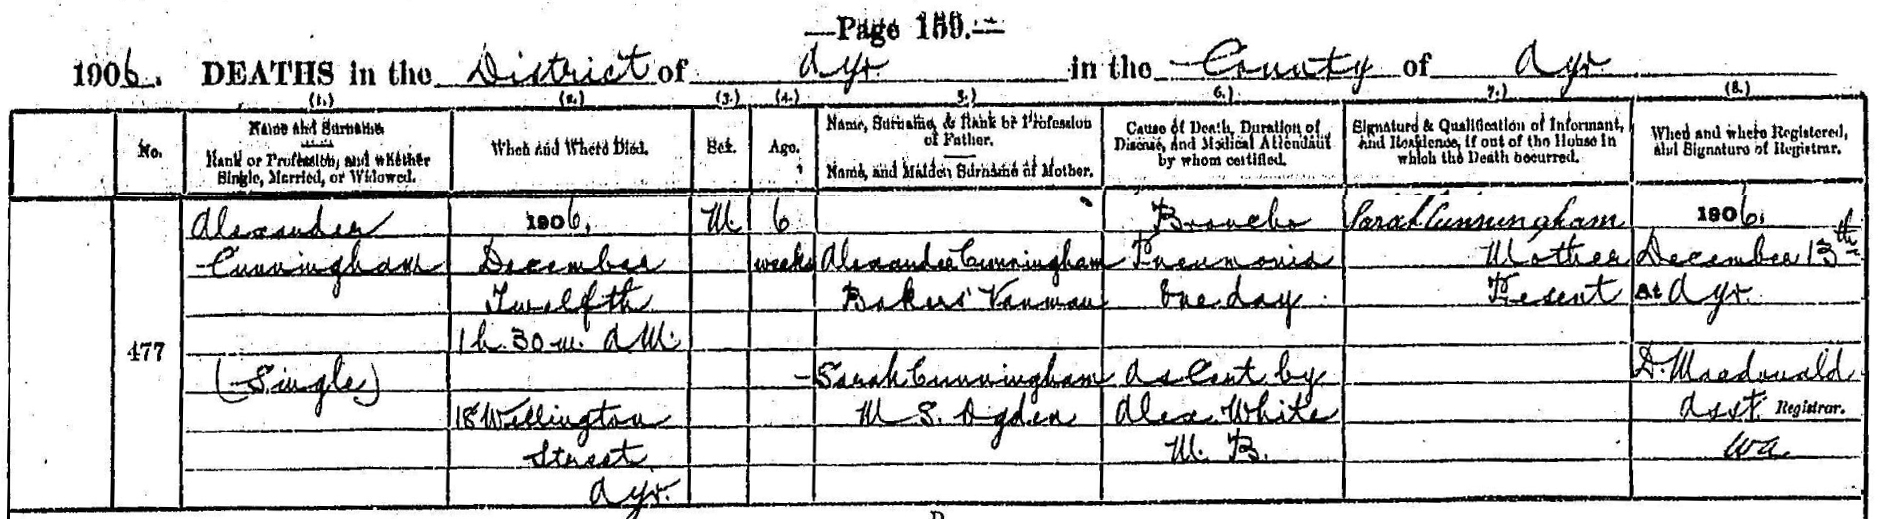 Page 159.
1906. DEATHS in the District of Ayr in the County of Ayr
(1.) (2.) (3.) (4.) 5.) 6.) 7.) (8.)
No.
Name and Surname
Rank or Profession, and whether
Single, Married, or Widowed.
When and Where Died.
Sex.
Age.
Name, Surname, & Rank or Profession
of Father.
Name, and Maiden Surname of Mother.
Cause of Death, Duration of
Disease, and Medical Attendant
by whom certified.
Signature & Qualification of Informant,
and Residence, if out of the House in
which the Death occurred.
When and where Registered,
and Signature of Registrar.
477
Alexander
Cunningham
(Single)
1906,
December
Twelfth
1h. 30m. A.M.
18 Wellington
Street
Ayr.
M.
6
weeks
Alexander Cunningham
Bakers' Vanman
Sarah Cunningham
M. S. Ogden
Broncho
Pneumonia
One day
As Cert. by
Alex. White
M. B.
Sarah Cunningham
Mother
Present
1906,
December 13th
At Ayr.
D. Macdonald
Asst. Registrar.